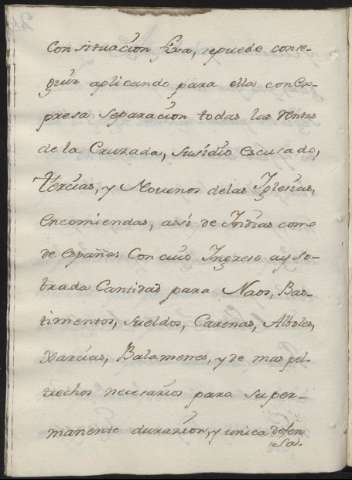 Con situacion fixa, sepuede conse-
guir aplicando para ella con Ex-
presa Separacion todas las rentas
de la Cruzada, Susidio escusado,
Tercias, y Novenos delas Iglesias,
encomiendas, assi de Indias come
de españas Con cuio Ingreso ay so-
brada Cantidad para Naos, Bas-
timentos, sueldos, Carenas, Alboles,
xarcias, Balamenes, y de mas pel-
trechos necesarios para su per-
manente durazion, y unica defen
sa.